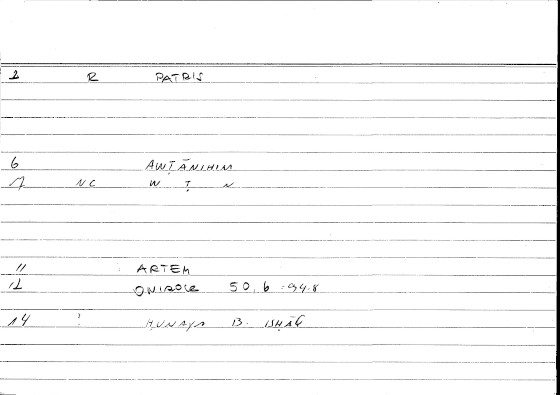 1 R PATRIS
6 AWṬĀNIHIM
17 NC W Ṭ N
11 ARTEM
12 ONIROCR 50,6 = 94.8
14 ? ḤUNAYN B. ISḤĀQ